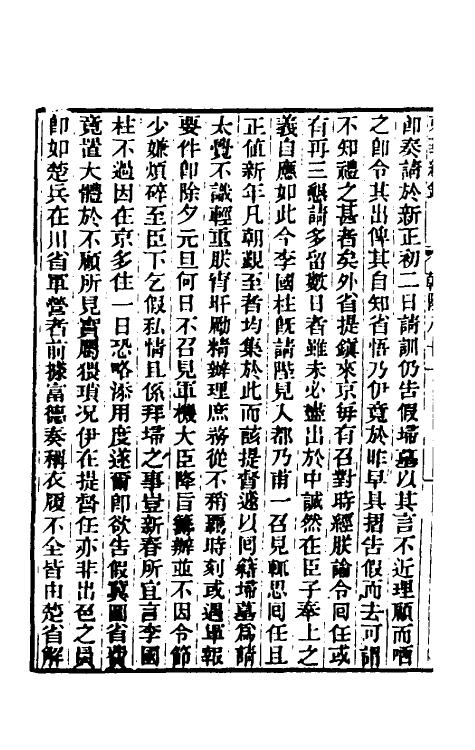 卽奏請於新正初二日請訓仍告假埽墓以其言不近理顧而哂
之卽令其出俾其自知省悟乃伊竟於昨早具摺告假而去可謂
不知禮之甚者矣外省提鎭來京每有召對時經朕諭令回任或
有再三懇請多留數日者雖未必盡出於中誠然在臣子奉上之
義自應如此今李國柱旣請陛見入都乃甫一召見輒思回任且
正値新年凡朝覲至者均集於此而該提督遽以回籍埽墓爲請
太覺不識輕重朕宵旰勵精辦理庶務從不稍曠時刻或遇軍報
要件卽除夕元旦何日不召見軍機大臣降旨籌辦並不因令節
少嫌煩碎至臣下乞假私情且係拜埽之事豈新春所宜言李國
柱不過因在京多住一日恐略添用度遂爾卽欲告假冀圖省費
竟置大體於不顧所見實屬猥瑣况伊在提督任亦非出色之員
卽如楚兵在川省軍營者前據富德奏稱衣履不全皆由楚省解